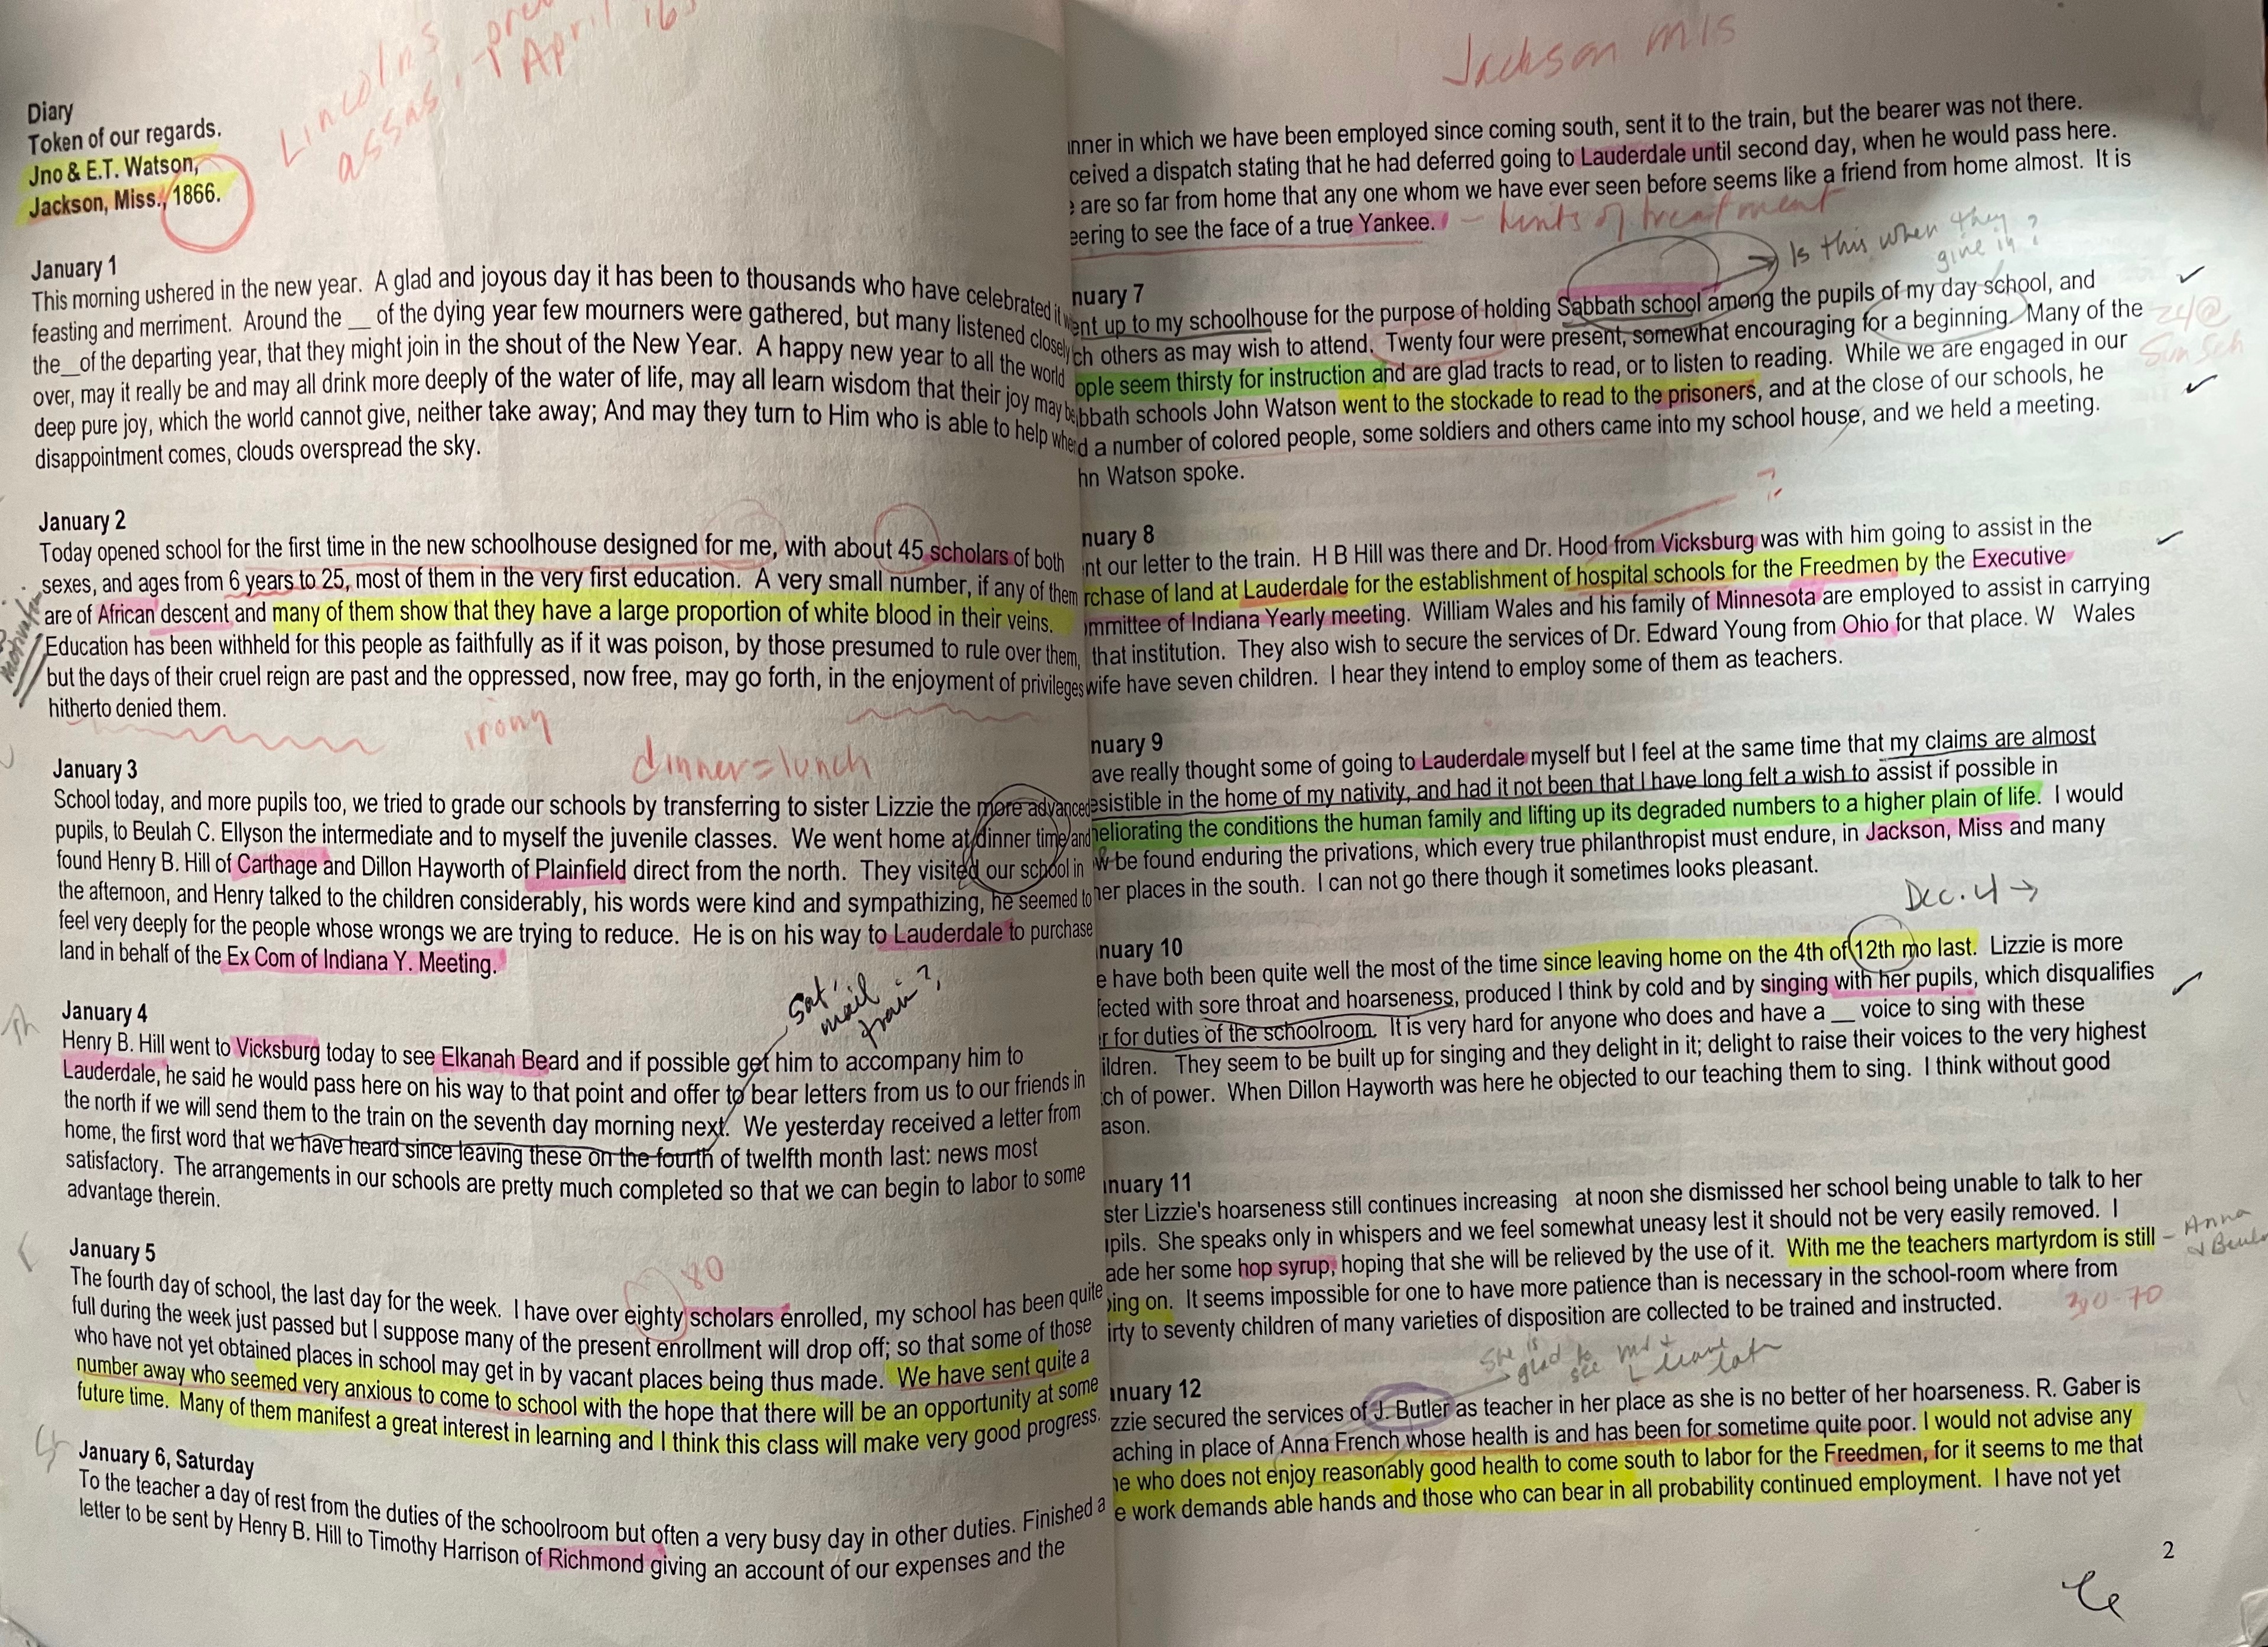 Lincolns
assas. April
Diary
Token of our regards.
Jno & E.T. Watson,
Jackson, Miss., 1866.
January 1
This morning ushered in the new year. A glad and joyous day it has been to thousands who have celebrated it
feasting and merriment. Around the __ of the dying year few mourners were gathered, but many listened closely
the__of the departing year, that they might join in the shout of the New Year. A happy new year to all the world
over, may it really be and may all drink more deeply of the water of life, may all learn wisdom that their joy may be
deep pure joy, which the world cannot give, neither take away; And may they turn to Him who is able to help when
disappointment comes, clouds overspread the sky.
January 2
Today opened school for the first time in the new schoolhouse designed for me, with about 45 scholars of both
sexes, and ages from 6 years to 25, most of them in the very first education. A very small number, if any of them
are of African descent and many of them show that they have a large proportion of white blood in their veins.
Education has been withheld for this people as faithfully as if it was poison, by those presumed to rule over them,
but the days of their cruel reign are past and the oppressed, now free, may go forth, in the enjoyment of privileges
hitherto denied them.
irony
dinner=lunch
January 3
School today, and more pupils too, we tried to grade our schools by transferring to sister Lizzie the more advanced
pupils, to Beulah C. Ellyson the intermediate and to myself the juvenile classes. We went home at dinner time and
found Henry B. Hill of Carthage and Dillon Hayworth of Plainfield direct from the north. They visited our school in
the afternoon, and Henry talked to the children considerably, his words were kind and sympathizing, he seemed to
feel very deeply for the people whose wrongs we are trying to reduce. He is on his way to Lauderdale to purchase
land in behalf of the Ex Com of Indiana Y. Meeting.
Sat
mail
train?
January 4
Henry B. Hill went to Vicksburg today to see Elkanah Beard and if possible get him to accompany him to
Lauderdale, he said he would pass here on his way to that point and offer to bear letters from us to our friends in
the north if we will send them to the train on the seventh day morning next. We yesterday received a letter from
home, the first word that we have heard since leaving these on the fourth of twelfth month last: news most
satisfactory. The arrangements in our schools are pretty much completed so that we can begin to labor to some
advantage therein.
80
January 5
The fourth day of school, the last day for the week. I have over eighty scholars enrolled, my school has been quite
full during the week just passed but I suppose many of the present enrollment will drop off; so that some of those
who have not yet obtained places in school may get in by vacant places being thus made. We have sent quite a
number away who seemed very anxious to come to school with the hope that there will be an opportunity at some
future time. Many of them manifest a great interest in learning and I think this class will make very good progress.
January 6, Saturday
To the teacher a day of rest from the duties of the schoolroom but often a very busy day in other duties. Finished a
letter to be sent by Henry B. Hill to Timothy Harrison of Richmond giving an account of our expenses and the
Jackson mis
nner in which we have been employed since coming south, sent it to the train, but the bearer was not there.
ceived a dispatch stating that he had deferred going to Lauderdale until second day, when he would pass here.
e are so far from home that any one whom we have ever seen before seems like a friend from home almost. It is
eering to see the face of a true Yankee. - hints of treatment
Is this when they
give in?
nuary 7
ent up to my schoolhouse for the purpose of holding Sabbath school among the pupils of my day school, and
ch others as may wish to attend. Twenty four were present, somewhat encouraging for a beginning. Many of the
ople seem thirsty for instruction and are glad tracts to read, or to listen to reading. While we are engaged in our
bbath schools John Watson went to the stockade to read to the prisoners, and at the close of our schools, he
d a number of colored people, some soldiers and others came into my school house, and we held a meeting.
hn Watson spoke.
24@
Sun Sch
?
nuary 8
nt our letter to the train. H B Hill was there and Dr. Hood from Vicksburg was with him going to assist in the
rchase of land at Lauderdale for the establishment of hospital schools for the Freedmen by the Executive
mmittee of Indiana Yearly meeting. William Wales and his family of Minnesota are employed to assist in carrying
that institution. They also wish to secure the services of Dr. Edward Young from Ohio for that place. W Wales
wife have seven children. I hear they intend to employ some of them as teachers.
nuary 9
ave really thought some of going to Lauderdale myself but I feel at the same time that my claims are almost
esistible in the home of my nativity, and had it not been that I have long felt a wish to assist if possible in
neliorating the conditions the human family and lifting up its degraded numbers to a higher plain of life. I would
w be found enduring the privations, which every true philanthropist must endure, in Jackson, Miss and many
her places in the south. I can not go there though it sometimes looks pleasant.
Dec. 4 →
nuary 10
e have both been quite well the most of the time since leaving home on the 4th of 12th mo last. Lizzie is more
fected with sore throat and hoarseness, produced I think by cold and by singing with her pupils, which disqualifies
r for duties of the schoolroom. It is very hard for anyone who does and have a __ voice to sing with these
ildren. They seem to be built up for singing and they delight in it; delight to raise their voices to the very highest
ch of power. When Dillon Hayworth was here he objected to our teaching them to sing. I think without good
ason.
nuary 11
ster Lizzie's hoarseness still continues increasing at noon she dismissed her school being unable to talk to her
pils. She speaks only in whispers and we feel somewhat uneasy lest it should not be very easily removed. I
ade her some hop syrup, hoping that she will be relieved by the use of it. With me the teachers martyrdom is still
oing on. It seems impossible for one to have more patience than is necessary in the school-room where from
irty to seventy children of many varieties of disposition are collected to be trained and instructed.
- Anna
30-70
She is
glad to
see
nuary 12
zzie secured the services of J. Butler as teacher in her place as she is no better of her hoarseness. R. Gaber is
aching in place of Anna French whose health is and has been for sometime quite poor. I would not advise any
ne who does not enjoy reasonably good health to come south to labor for the Freedmen, for it seems to me that
e work demands able hands and those who can bear in all probability continued employment. I have not yet
2